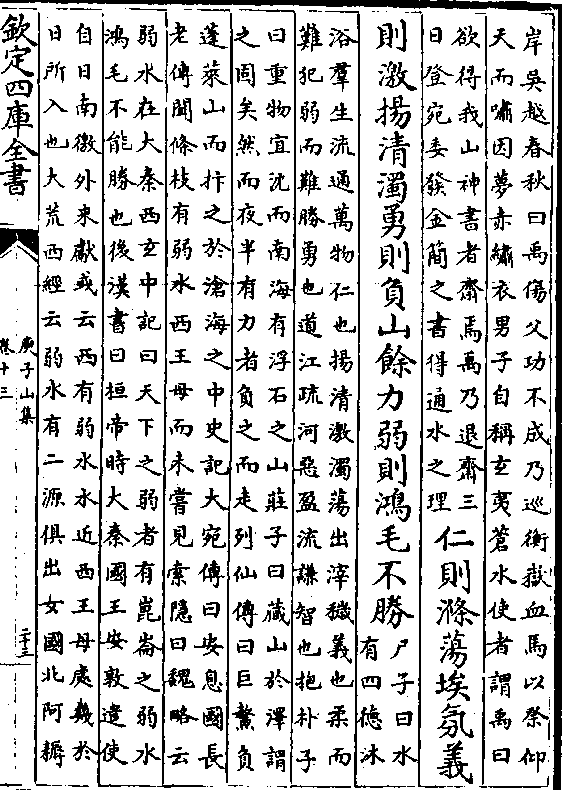 岸吳越春秋曰禹傷父功不成乃巡衡嶽血馬以祭仰
天而嘯因夢赤繡衣男子自稱玄夷蒼水使者謂禹曰
欲得我山神書者齋焉禹乃退齋三
日登宛委發金簡之書得通水之理
仁則滌蕩埃氛義
則激揚清濁勇則負山餘力弱則鴻毛不勝
尸子曰水
有四德沐
浴羣生流通萬物仁也揚清激濁蕩出滓穢義也柔而
難犯弱而難勝勇也道江疏河惡盈流謙智也抱朴子
曰重物宜沈而南海有浮石之山莊子曰藏山於澤謂
之固矣然而夜半有力者負之而走列仙傳曰巨鰲負
蓬萊山而抃之於滄海之中史記大宛傳曰安息國長
老傳聞條枝有弱水西王母而未嘗見索隱曰魏略云
弱水在大秦西玄中記曰天下之弱者有崑崙之弱水
鴻毛不能勝也後漢書曰桓帝時大秦國王安敦遣使
自日南徼外來獻或云西有弱水水近西王母處幾於
日所入也大荒西經云弱水有二源俱出女國北阿耨
欽定四庫全書
庾子山集
卷十三
二十三